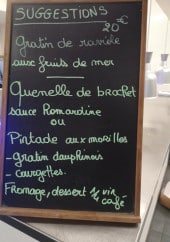 SUGGESTIONS
20€
Gratin de raviole
aux fruits de mer
Quenelle de brochet
sauce Homardine
OU
Pintade aux morilles
- gratin dauphinois
- courgettes.
Fromage, dessert, 1/4 vin,
café